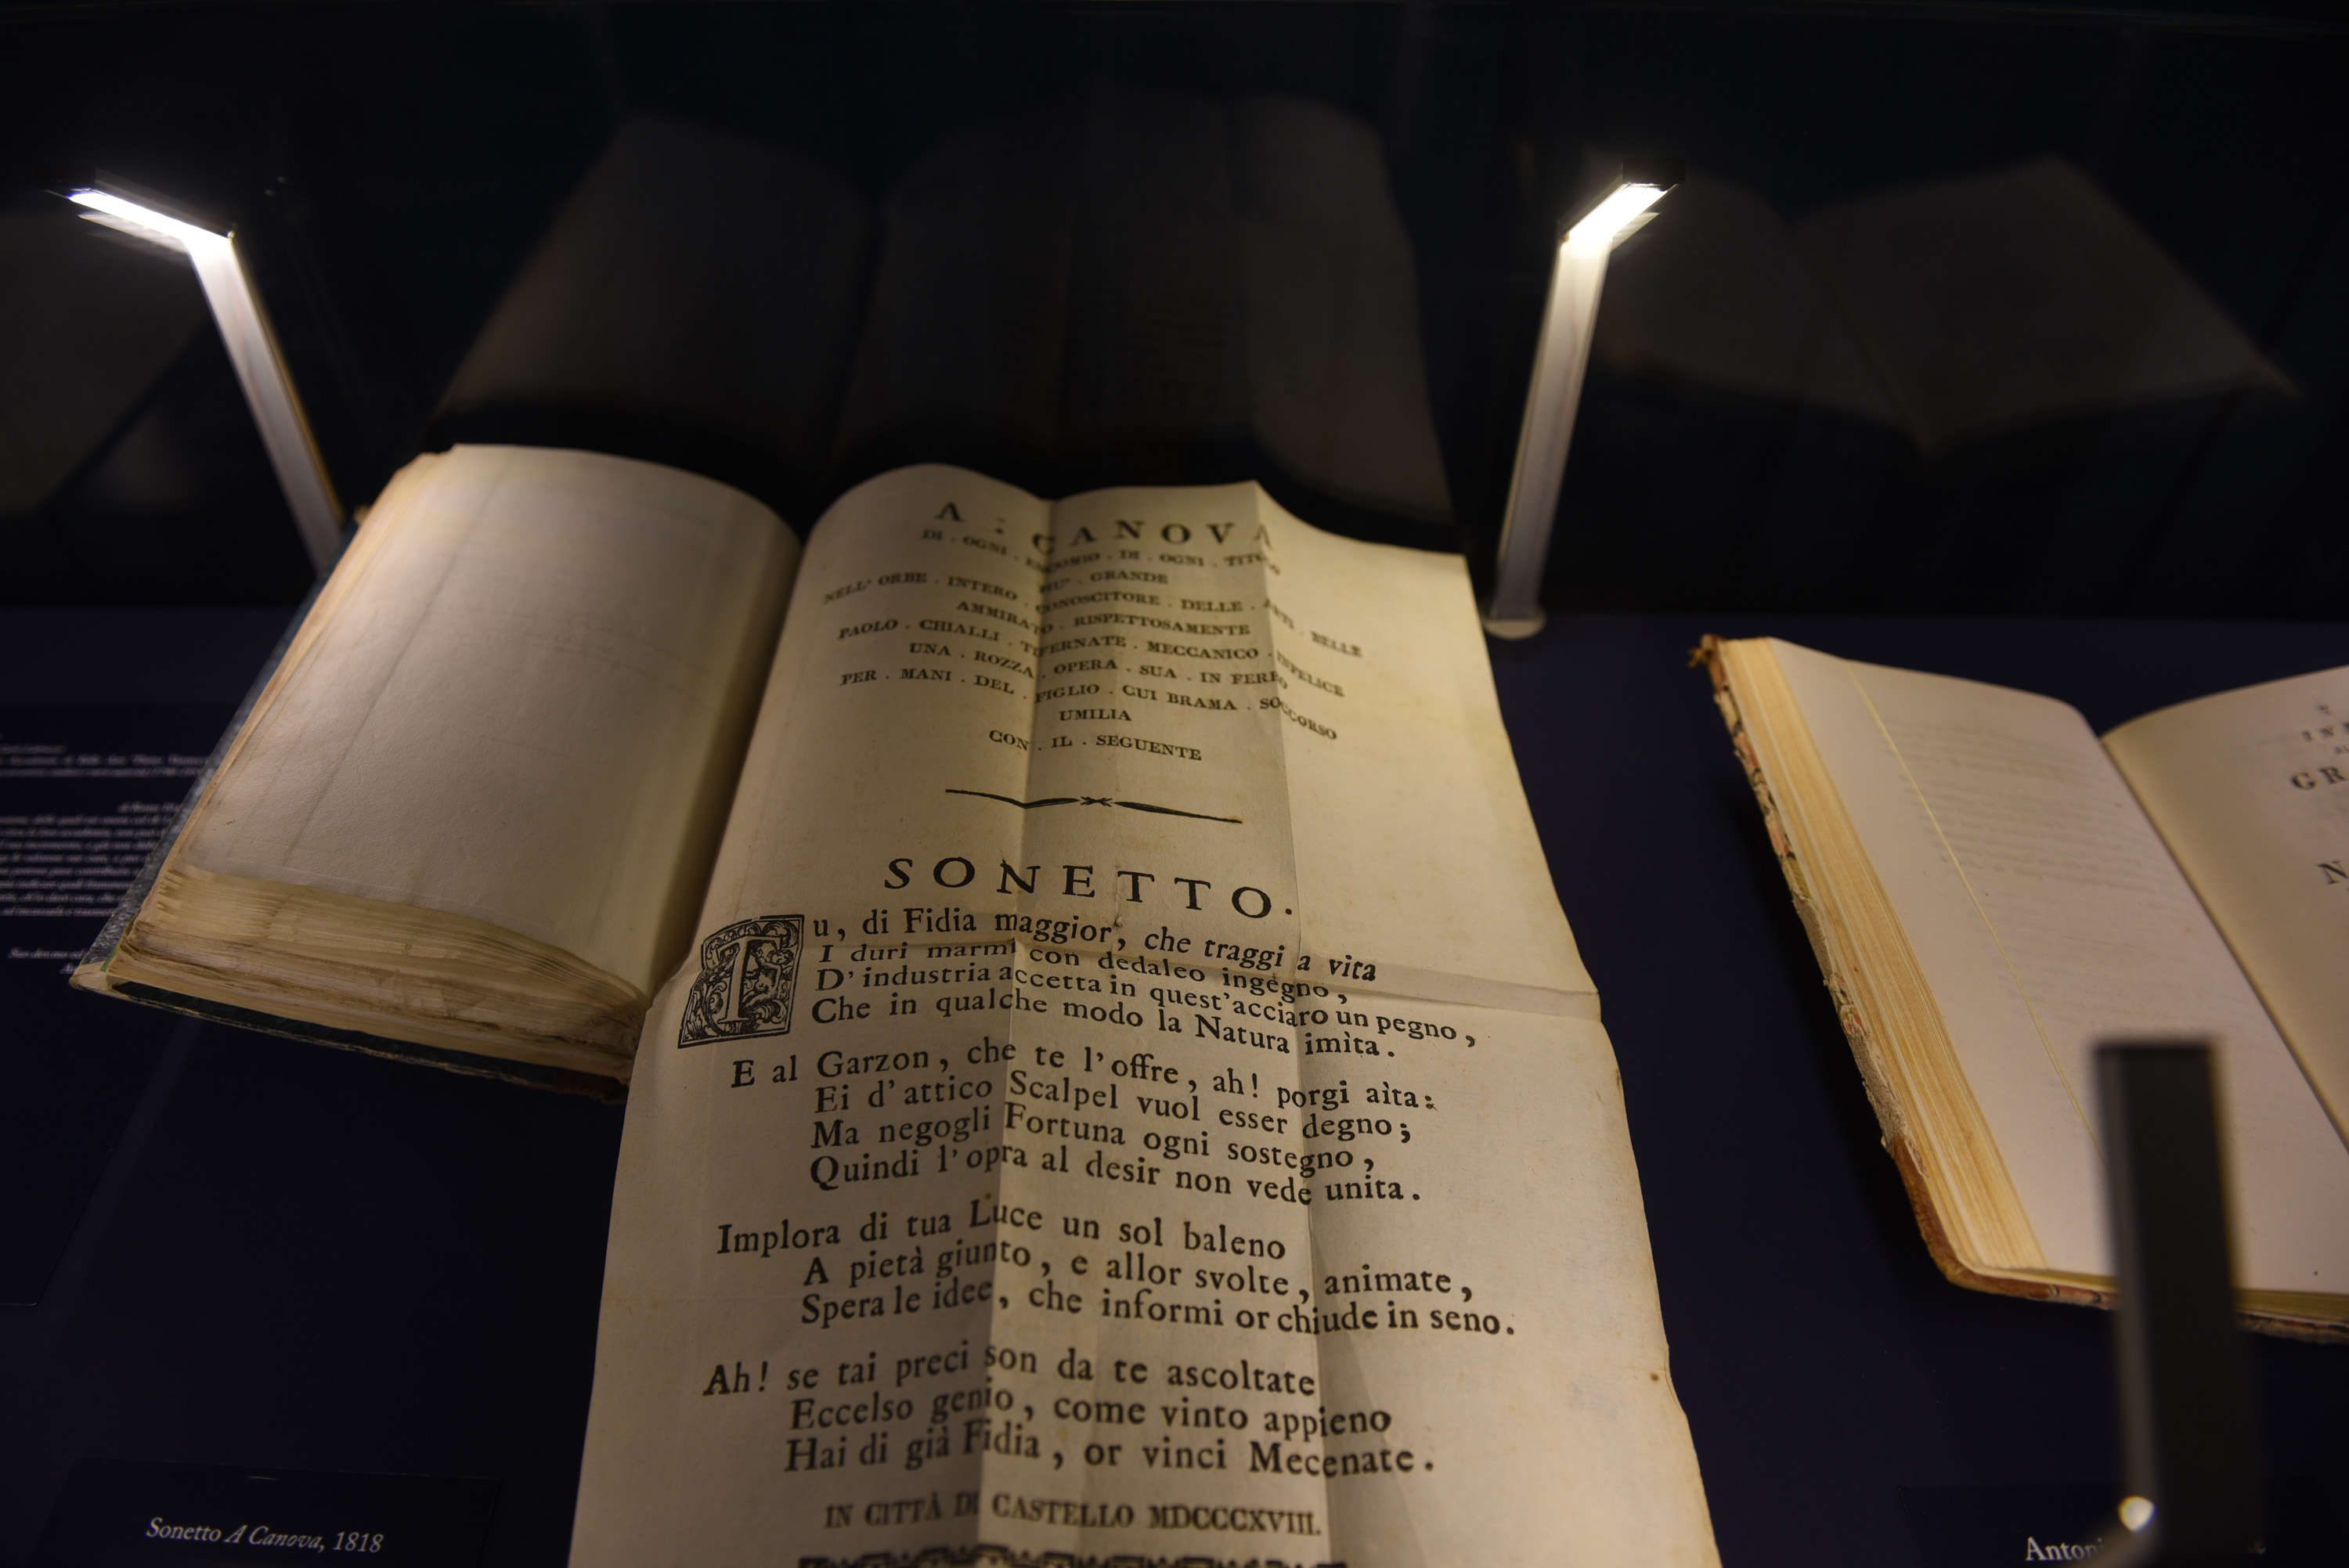 A : CANOVA
DI . OGNI . ENCOMIO . DI . OGNI . TITOLO
NELL' ORBE . INTERO . PIU' . GRANDE
AMMIRATO . CONOSCITORE . DELLE . ARTI . BELLE
PAOLO . CHIALLI . TIFERNATE . MECCANICO . INFELICE
UNA . ROZZA . OPERA . SUA . IN FERRO
PER . MANI . DEL . FIGLIO . CUI BRAMA . SOCCORSO
RISPETTOSAMENTE
UMILIA
CON . IL . SEGUENTE
SONETTO.
Tu, di Fidia maggior, che traggi a vita
I duri marmi con dedaleo ingegno,
D' industria accetta in quest' acciaro un pegno,
Che in qualche modo la Natura imìta.
E al Garzon, che te l'offre, ah! porgi aìta:
Ei d' attico Scalpel vuol esser degno;
Ma negogli Fortuna ogni sostegno,
Quindi l'opra al desir non vede unita.
Implora di tua Luce un sol baleno
A pietà giunto, e allor svolte, animate,
Spera le idee, che informi or chiude in seno.
Ah! se tai preci son da te ascoltate
Eccelso genio, come vinto appieno
Hai di già Fidia, or vinci Mecenate.
IN CITTÀ DI CASTELLO MDCCCXVIII.
Sonetto A Canova, 1818
GR
N
Anton